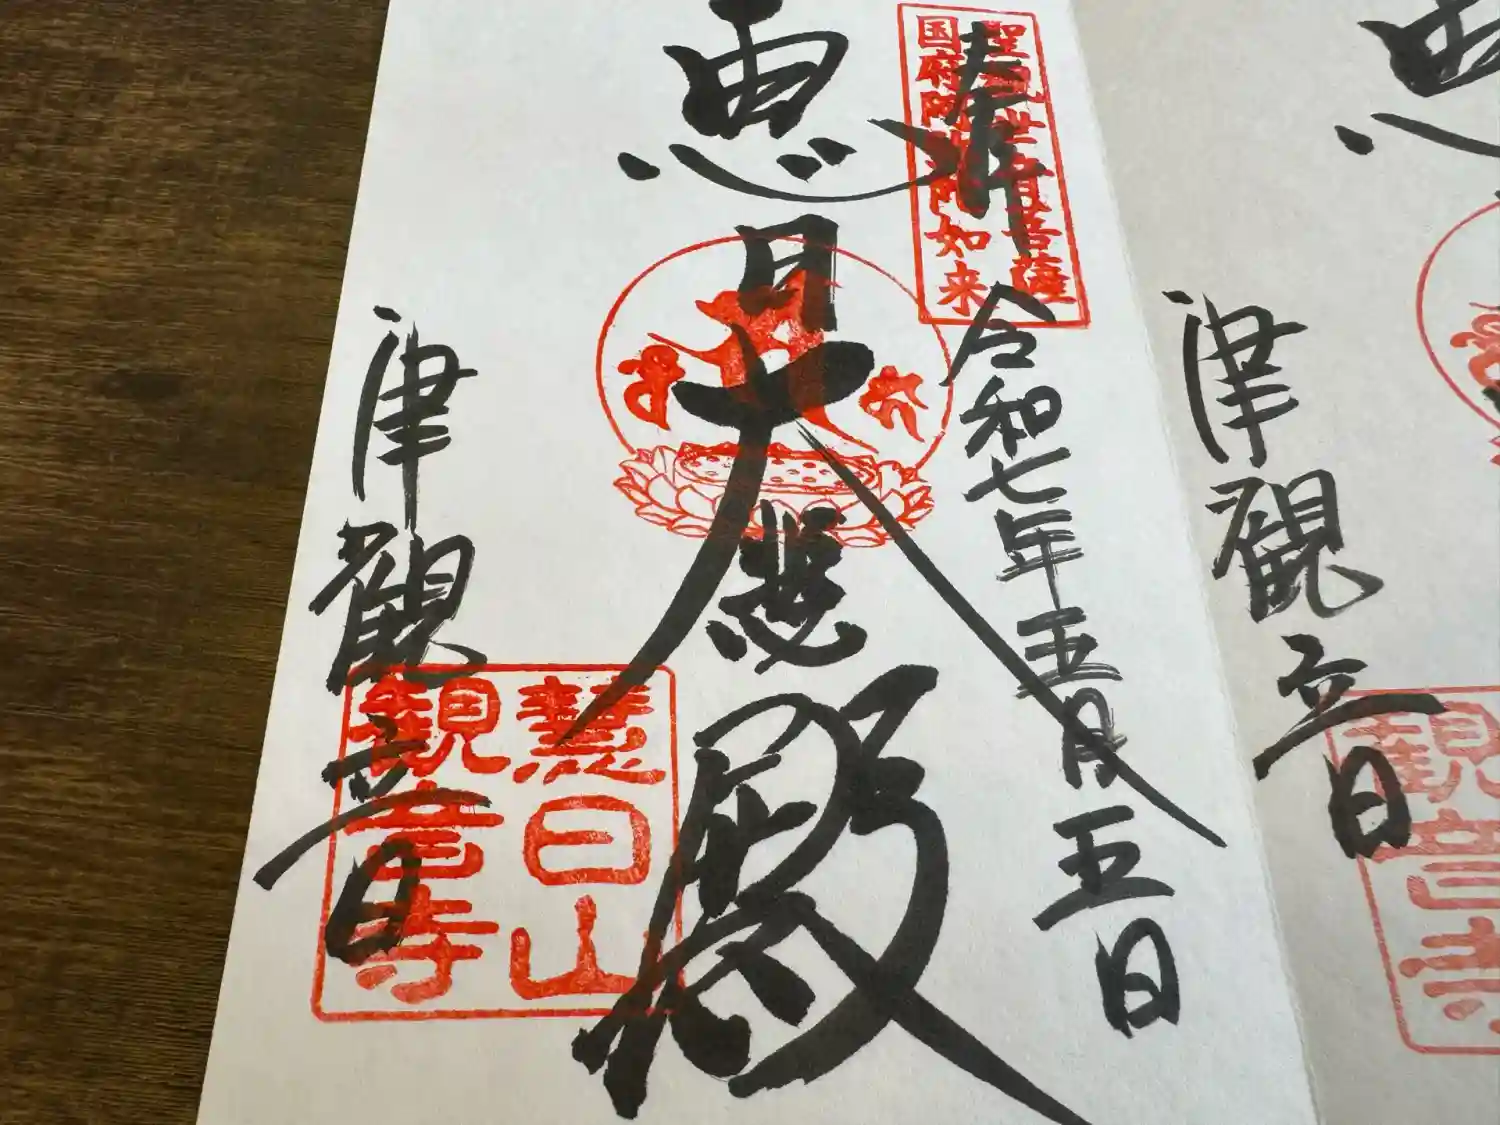 奉拝
聖観世音菩薩
国府阿弥陀如来
令和七年五月五日
恵日大悲殿
慧日山
観音寺
津観音
津観音
観音寺